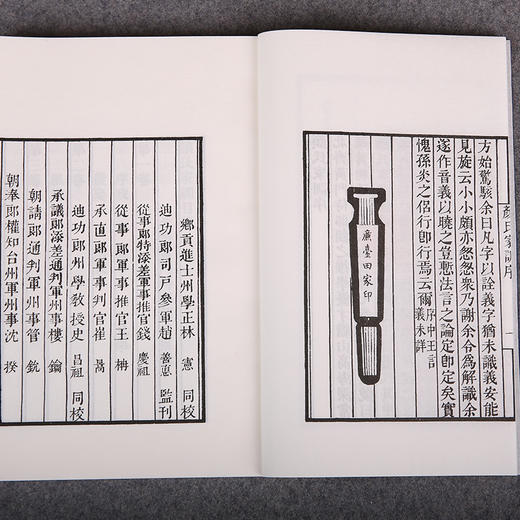 顏氏家訓序
一
方始驚駭余曰凡字以詮義字猶未識義安能
見旋云小小頗亦怱怱衆乃謝余令爲解識余
遂作音義以曉之豈慙法言之論定卽定矣實
愧孫炎之侶行卽行焉云爾 序中王言義未詳
廉臺田家印
鄉貢進士州學正林 憲 同校
迪功郎司戶參軍趙 善惪 監刊
從事郎特添差軍事推官錢 慶祖
從事郎軍事推官王 柟
承直郎軍事判官崔 暠
迪功郎州學教授史 昌祖 同校
承議郎添差通判軍州事樓 鑰
朝請郎通判軍州事管 銳
朝奉郎權知台州軍州事沈 揆